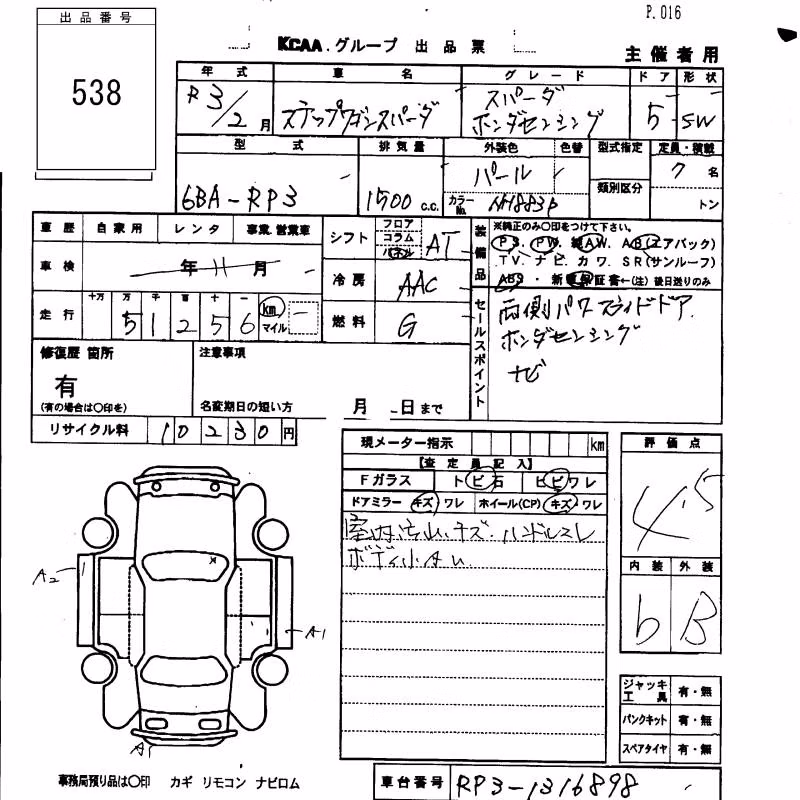 P.016
出品番号
538
KCAA.グループ 出品票
主催者用
年式 車名 グレード ドア 形状
R3/2月 ステップワゴンスパーダ スパーダ ホンダセンシング 5 SW
型式 排気量 外装色 色替 型式指定 定員・積載
6BA-RP3 1500 c.c. パール 7名
カラーNo. NH883P 類別区分 トン
車歴 自家用 レンタ 事業.営業車
車検 年 11 月
走行 十万 万 千 百 十 一
51256 km マイル
シフト フロア コラム パネル AT
冷房 AAC
燃料 G
装備品 ※純正のみ○印をつけて下さい。
P.S. PW. AW. AB(エアバック)
TV. ナビ. カワ. SR(サンルーフ)
ABS・新 保証書←(注)後日送りのみ
セールスポイント
両側パワースライドドア.
ホンダセンシング
ナビ
修復歴 箇所 注意事項
有
(有の場合は○印を) 名変期日の短い方 月 日まで
リサイクル料 10230円
現メーター指示 km
【査定員記入】
Fガラス トビ石 ヒビワレ
ドアミラー キズ ワレ ホイール(CP) キズ・ワレ
室内汚れ.キズ.ハンドルスレ
ボディ小キズ
評価点
4.5
内装 外装
b B
A2
A1
A1
ジャッキ工具 有・無
パンクキット 有・無
スペアタイヤ 有・無
事務局預り品は○印 カギ リモコン ナビロム
車台番号 RP3-1316898